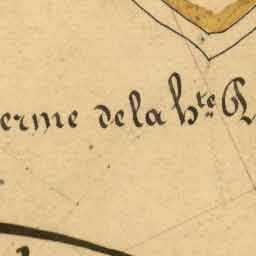 erme de la hte